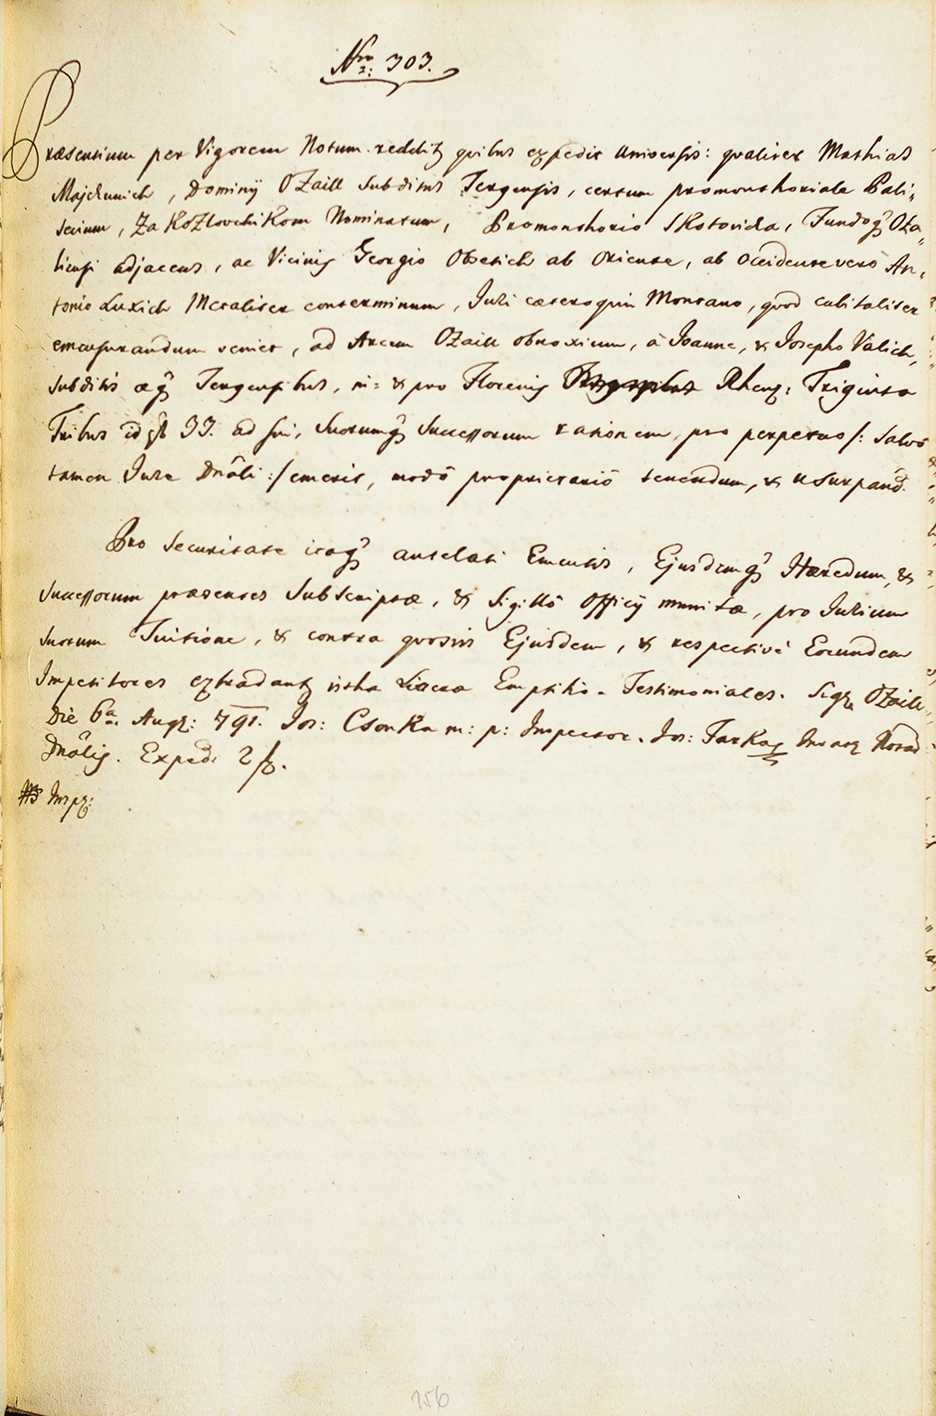 Nro 2: 303.
Præsentium per Vigorem Notum redditq quibus expedit Universis: qualiter Mathias
Majchunich, Dominÿ OZaill Subditus Tergensis, certum promonthoriale Pali„
Setum, Za KoZlovchiKom Nominatum, Promonthorio SKotovicha, Fundoq OZa„
liensi adjacens, ac Vicinis Georgio Obetich ab Oriente, ab Occidente verò An„
tonio Luxich Metaliter conterminum, Juri cæteroquin Montano, quod cubitaliter
emensurandum veniet, ad Arcem OZaill obnoxium, à Joanne, & Josepho Valich,
Subditis æq Tergensibus, in & pro Florenis Rhenq: Triginta
Tribus id est 33. ad sui, Suorumq Successorum rationem, pro perpetuo /: Salvo
tamen Jure Dnâli :/ emerit, modô proprietariô tenendum, & Usurpand.
Pro Securitate itaq antelati Emtoris, Ejusdemq Hæredum, &
Successorum præsentes Subscriptæ, & Sigillô Officÿ munitæ, pro Jurium
Suorum Tuitione, & contra quosvis Ejusdem, & respectivè Eorundem
Impetitores extradantq istha Litera Emptiho-Testimoniales. Sigq OZaill
Die 6a Augq: 791. Jos: CsonKa m: p: Inspector. Jos: FarKas
Dnâlis. Exped: 2 f.
Inspq:
156